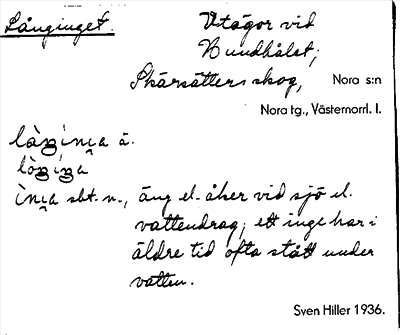 Långinget.
Utägor vid
Hundhålet;
Skärsätters skog, Nora s:n
Nora tg., Västernorrl. l.
sbt. n., äng el. åker vid sjö el.
vattendrag; ett inge har i
äldre tid ofta stått under
vatten.
Sven Hiller 1936.